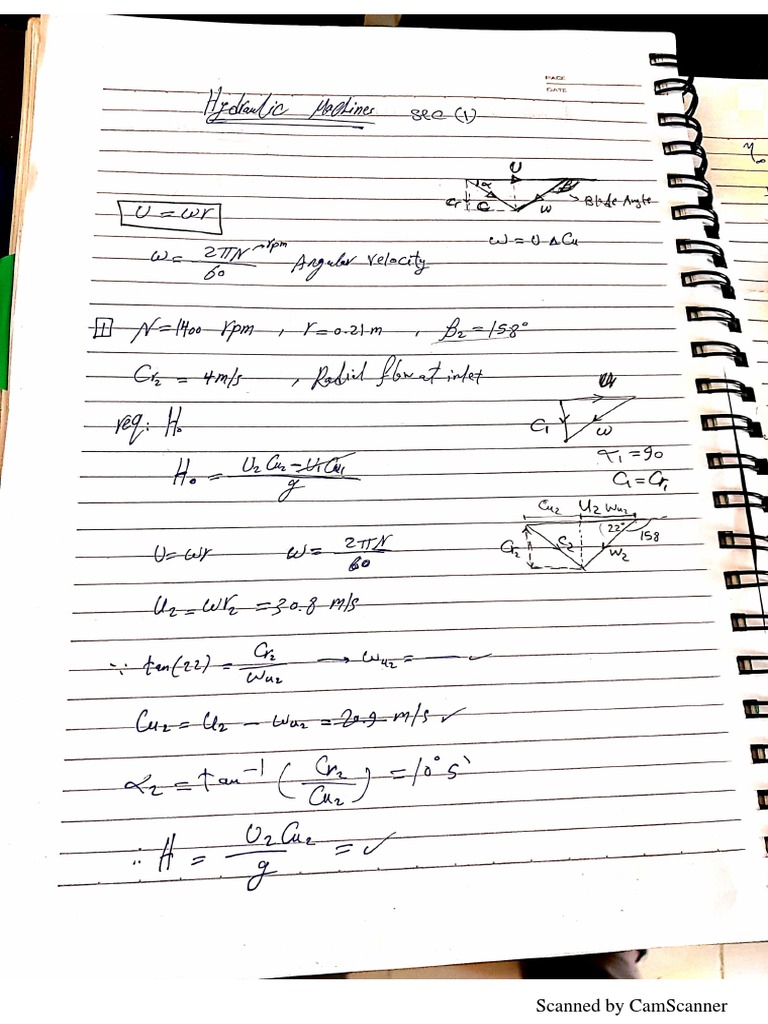 PAGE
DATE
Hydraulic Machines sec (1)
U
α β
Cr C W Blade Angle
U = ωr
ω = U Δ Cu
ω = 2πN / 60 → rpm Angular velocity
1 N = 1400 rpm , r = 0.21 m , β2 = 158°
Cr2 = 4 m/s , Radial flow at inlet
C1 W
req: H0
α1 = 90
C1 = Cr1
H0 = U2 Cu2 - U1 Cu1 / g
Cu2 U2 Wu2
22° 158
Cr2 C2 W2
U = ωr ω = 2πN / 60
U2 = ωr2 = 30.8 m/s
∵ tan(22) = Cr2 / Wu2 → Wu2 = — ✓
Cu2 = U2 - Wu2 = 20.9 m/s ✓
α2 = tan-1 (Cr2 / Cu2) = 10° 5`
∴ H = U2 Cu2 / g = ✓
Scanned by CamScanner